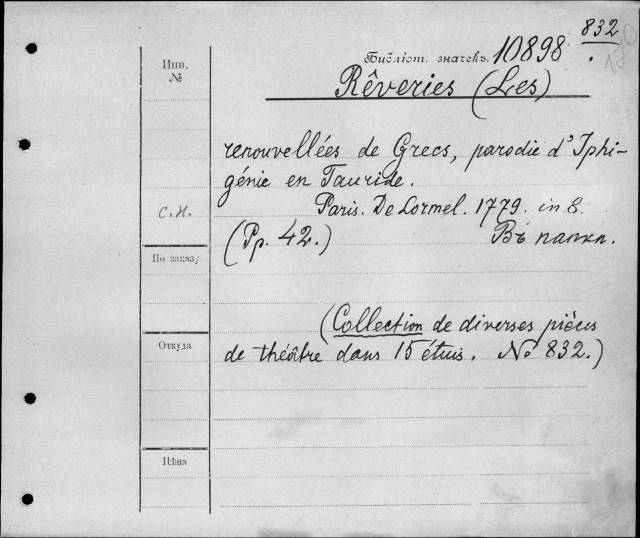 832
Инв.
№
Библіот. значекъ. 10898
Rêveries (Les)
renouvellées de Grecs, parodie d'Iphi-
génie en Tauride.
С.Н.
Paris. De Lormel. 1779. in 8.
(Pp. 42.)
Въ папкѣ.
По заказ;
(Collection de diverses pièces
Откуда
de théâtre dans 15 étuis. No 832.)
Цѣна